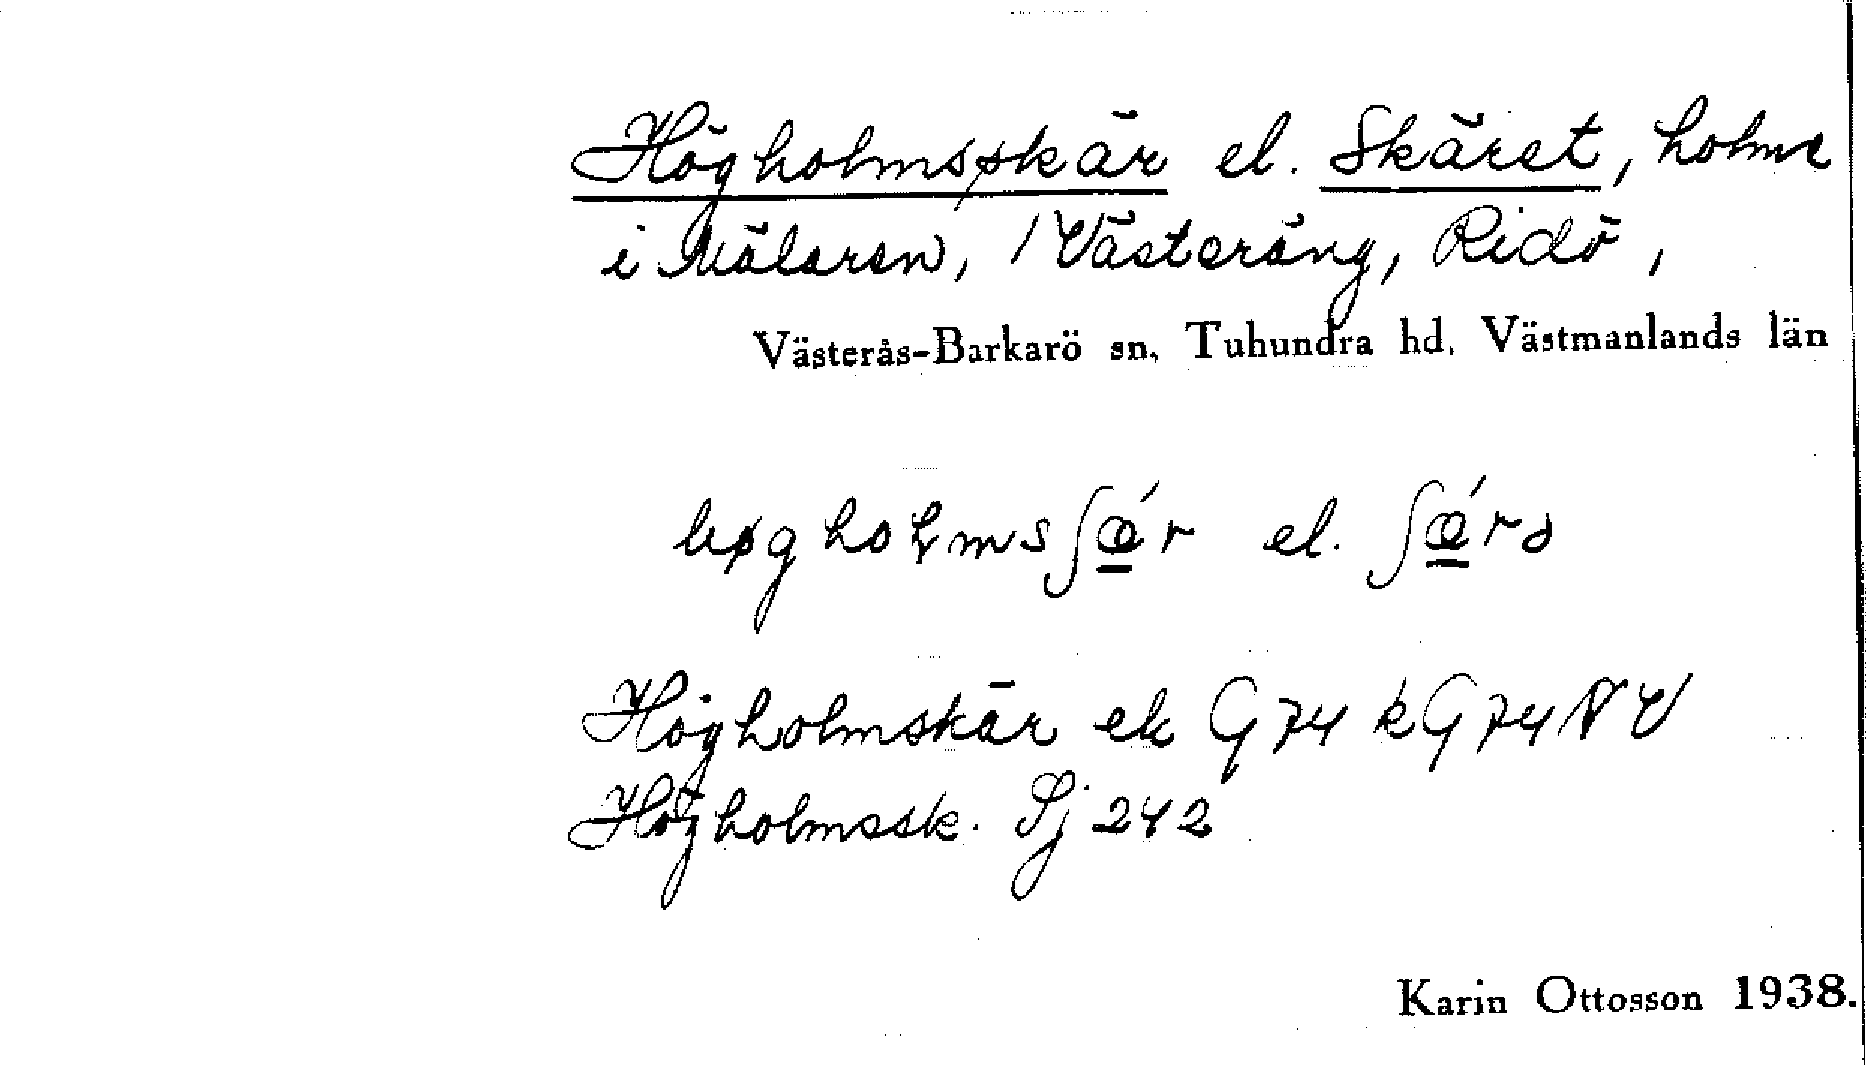 Högholmsskär el. Skäret, holme
i Mälaren, / Västeräng, Ridö,
Västerås-Barkarö sn, Tuhundra hd, Västmanlands län
høgholmsʃǽ̲r el. ʃǽ̲rə
Högholmskär ek G 74 k G 74 NV
Högholmssk. Sj 242
Karin Ottosson 1938.